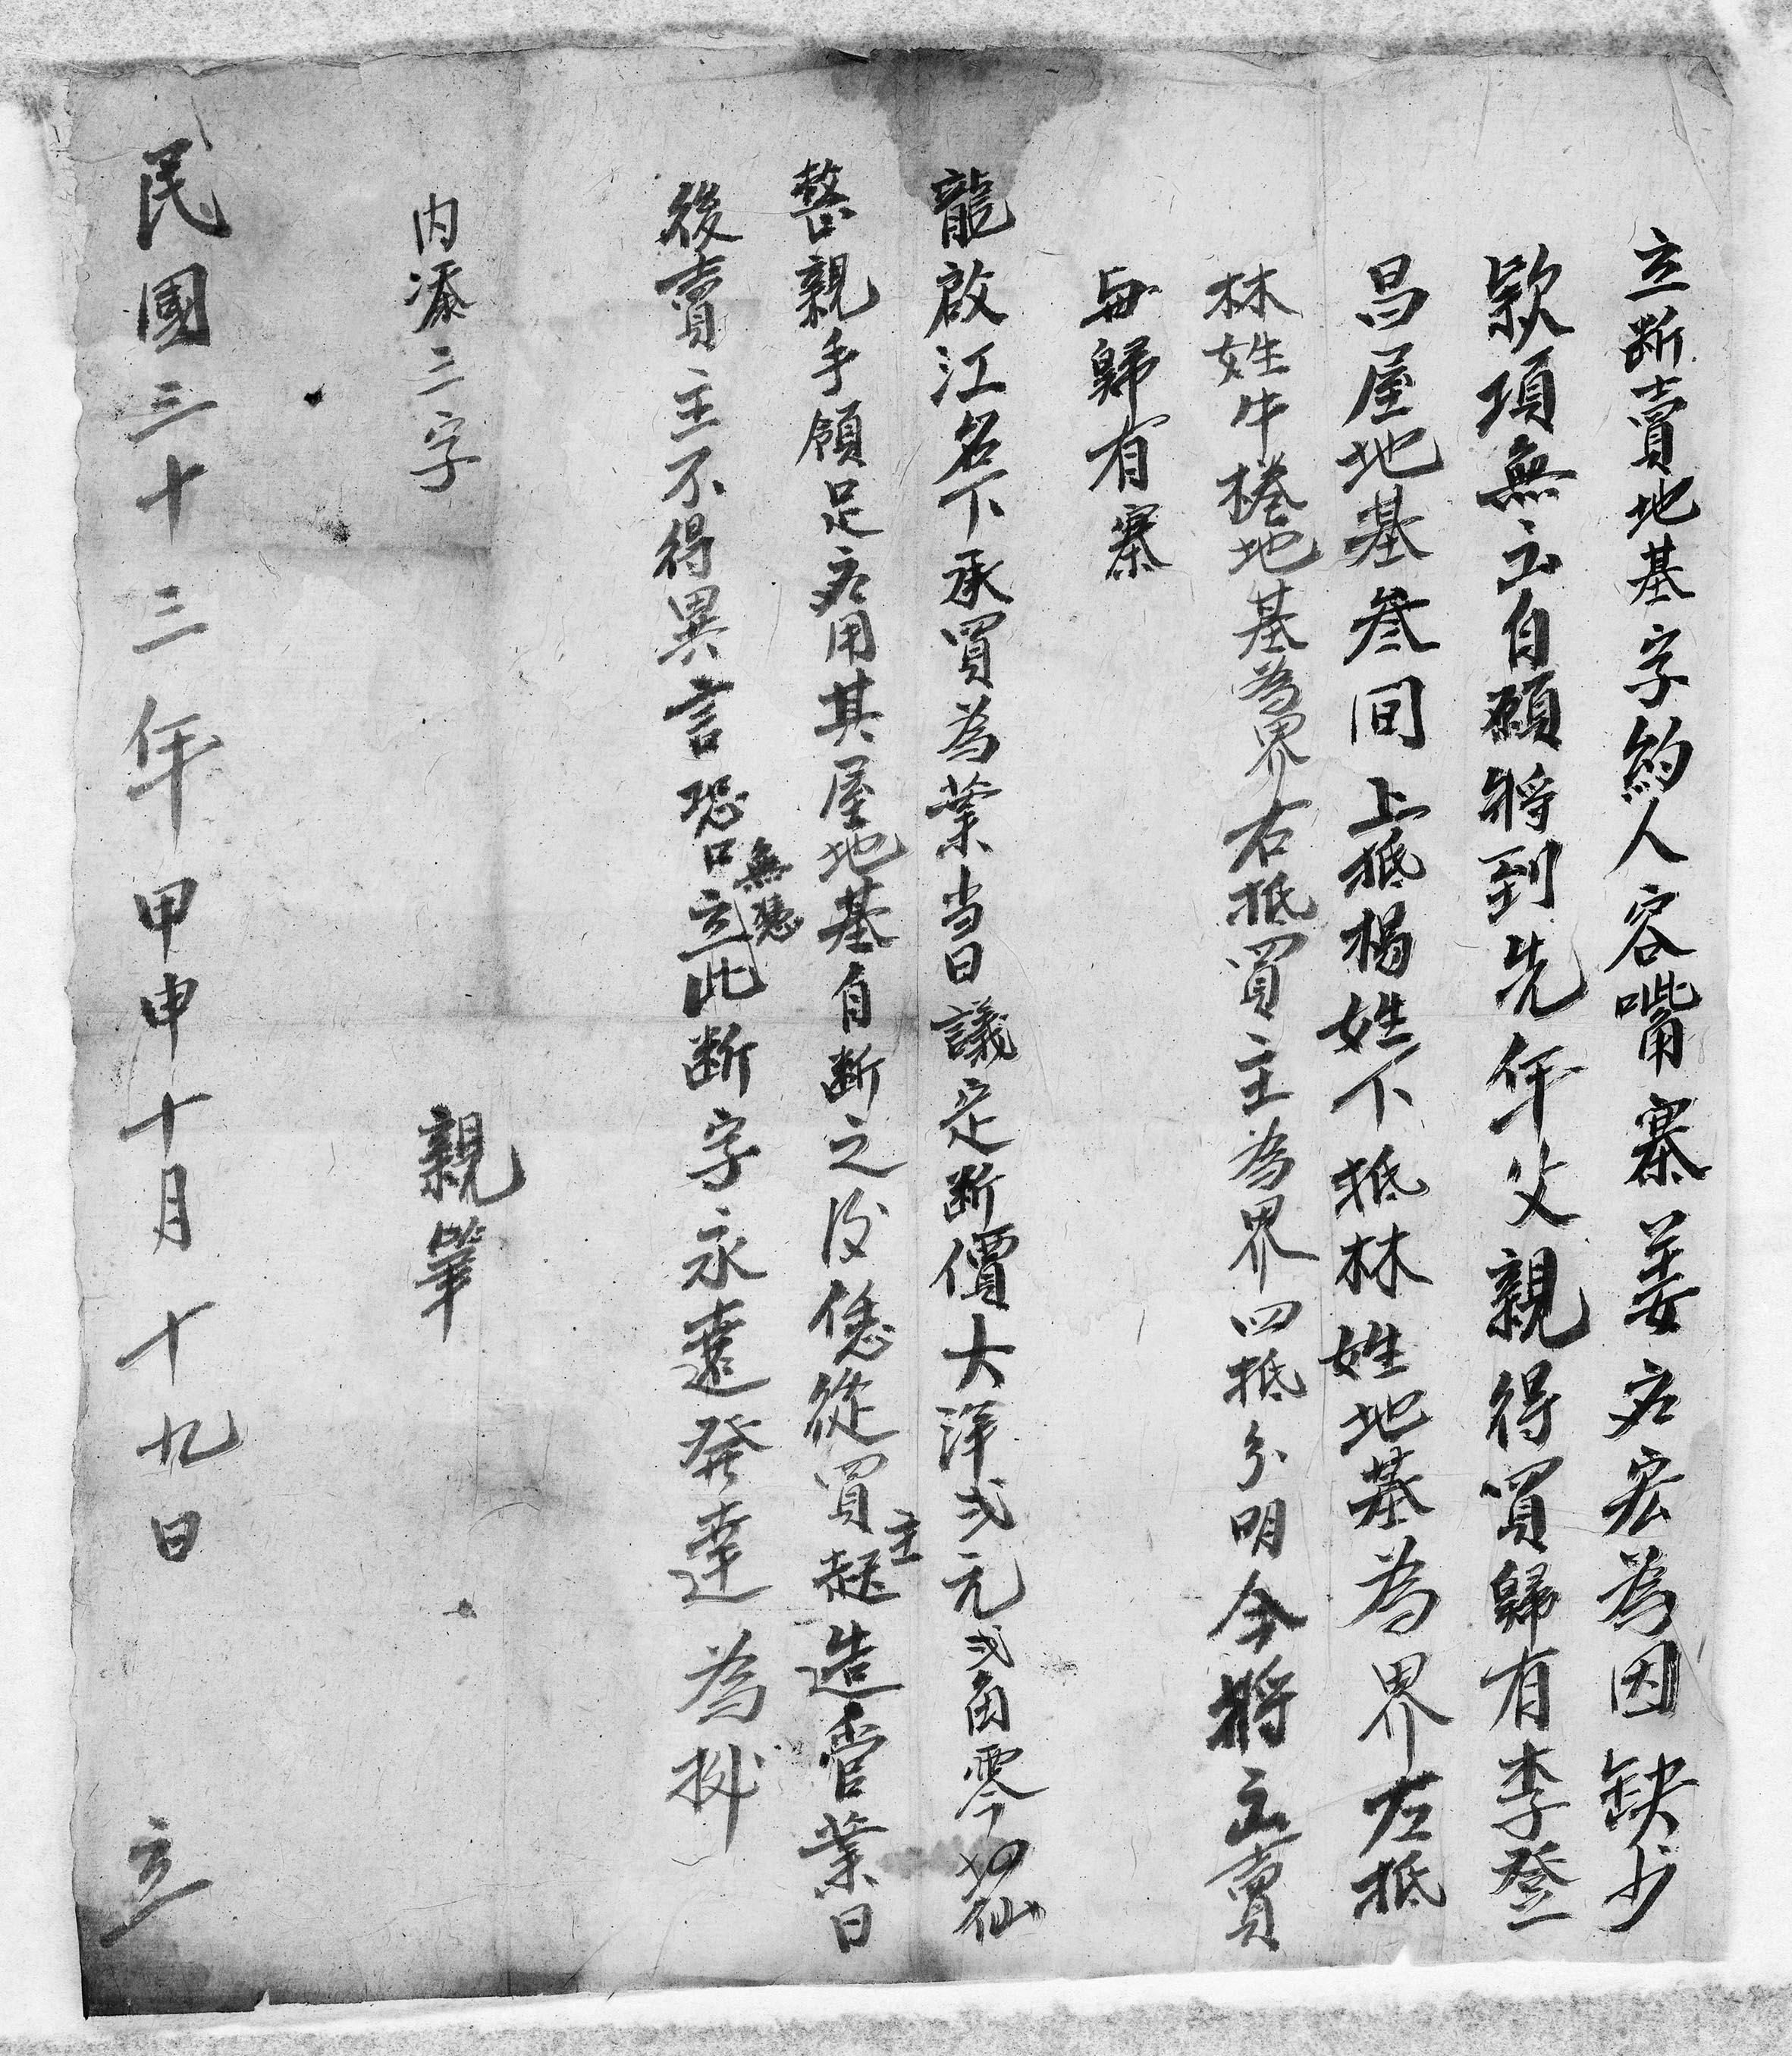 立断賣地基字約人容嘴寨姜宏為因缺少
欵項無出自願将到先年父親得買歸有李登
昌屋地基叁间上抵楊姓下抵林姓地基為界左抵
林姓牛棬地基為界右抵買主為界四抵分明今将出賣
与歸有寨
龍啟江名下承買為業当日議定断價大洋弍元弍角零仙
整親手領足應用其屋地基自断之後恁從買主起造管業日
後賣主不得異言恐口無憑立此断字永遠發達為挩
内添三字
親筆
民國三十三年甲申十月十九日 立